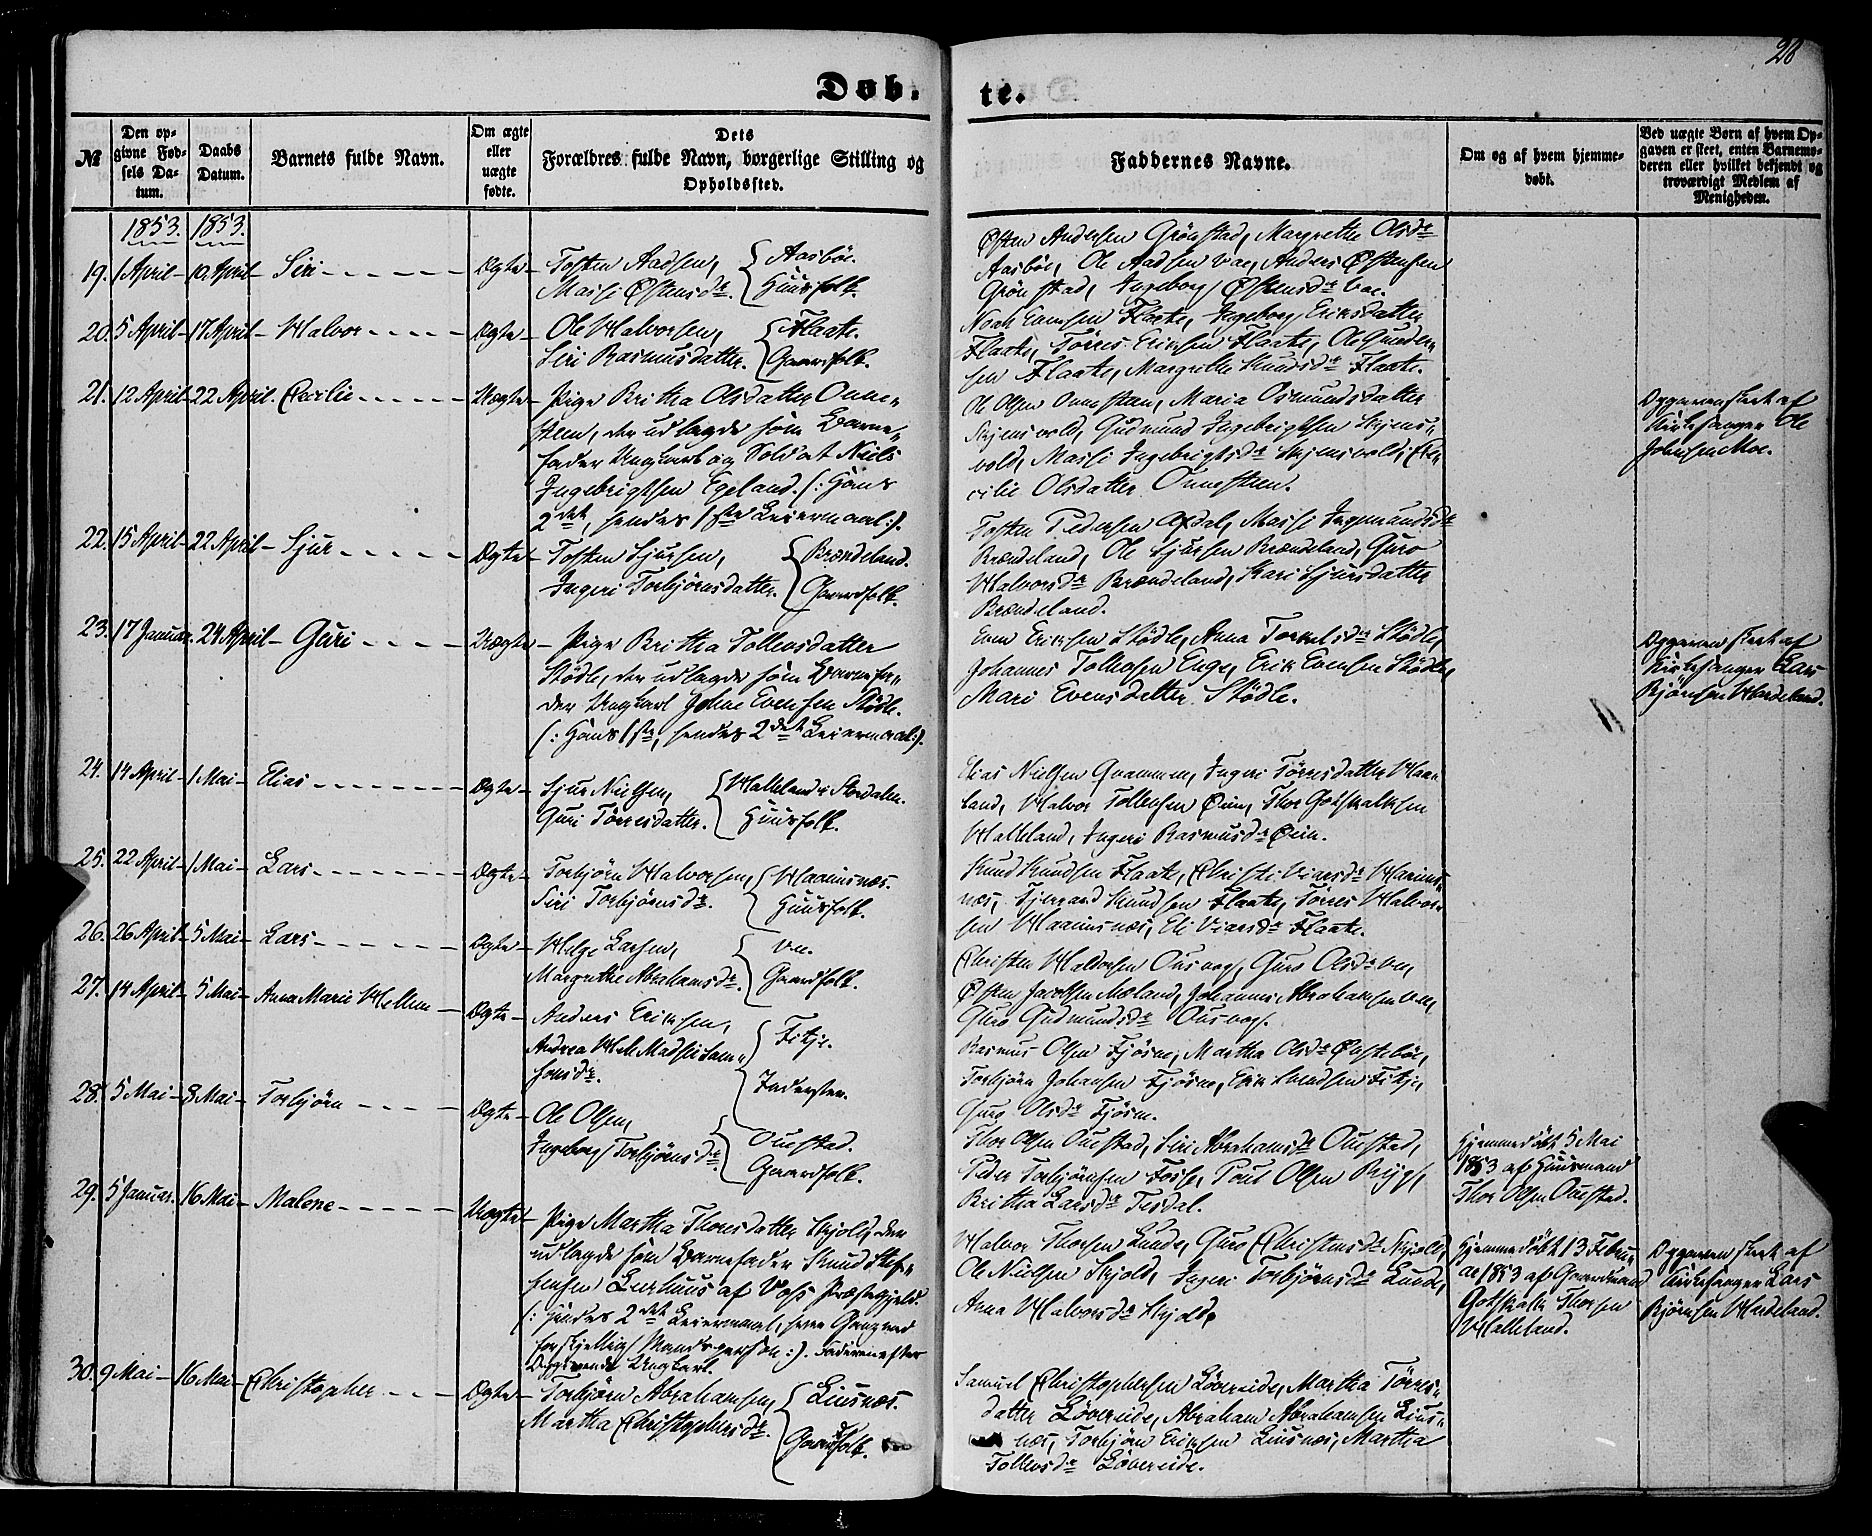 28
Døb-
te.
№
Den op-
givne Fød-
sels Da-
tum.
Daabs
Datum.
Barnets fulde Navn.
Om ægte
eller
uægte
fødte.
Dets
Forældres fulde Navn, borgerlige Stilling og
Opholdssted.
Faddernes Navne.
Om og af hvem hjemme-
døbt.
Ved uægte Børn af hvem Op-
gaven er skeet, enten Barnemo-
deren eller hvilket bekjendt og
troværdigt Medlem af
Menigheden.
1853. 1853.
19. 1 April 10 April Siri Ægte
Tosten Aadsen,
Massi Østensdr.
Aasbøe.
Huusfolk.
Østen Andersen Grönstad, Margrethe Olsdr
Aasböe, Ole Aadsen Vae, Anders Østensen
Grönstad, Ingeborg Østensdr Vae.
20. 5 April 17 April Halvor Ægte
Ole Halvorsen,
Siri Rasmusdatter.
Flaate.
Gaardfolk.
Flaate, Ingeborg Eriksdatter
Flaate, Törres Eriksen Flaate, Ole
sen Flaate, Margrethe Knudsdr Flaate.
21. 12 April 22 April Cecilie Uægte
Pige Britha Olsdatter Onne-
steen, der udlagde som Barne-
fader Ungkarl og Soldat Niels
Ingebrigtsen Egeland. (: Hans
2det, hendes 1ste Leiermaal:).
Ole Olsen Onnesteen, Maria Osmundsdatter
Skjensvold, Gudmund Ingebrigtsen Skjens-
vold, Massi Ingebrigtsdr Skjensvold, Ce-
cilie Olsdatter Onnesteen.
Opgaven skeet af
Kirkesanger Ole
Johnsen Moe.
22. 15 April 22 April Sjur Ægte
Tosten Sjursen,
Ingeri Torbjörnsdatter.
Brændeland.
Gaardfolk.
Tosten Pedersen Axdal, Massi Ingemundsdr
Brændeland, Ole Sjursen Brændeland, Guro
Halvorsdr Brændeland, Kari Sjursdatter
Brændeland.
23. 17 Januar. 24 April Guri Uægte
Pige Britha Tollevsdatter
Stödle, der udlagde som Barnefa-
der Ungkarl Johne Evensen Stödle.
(: Hans 1ste, hendes 2det Leiermaal:).
Even Eriksen Stödle, Anna Torkelsdr Stödle,
Johannes Tollevsen Enge, Erik Evensen Stödle,
Mari Evensdatter Stödle.
Opgaven skeet af
Kirkesanger Lars
Björnsen Hardeland.
24. 14 April 1 Mai Elias Ægte
Sjur Nielsen,
Guri Törresdatter.
Halleland i Stordalen.
Huusfolk.
Elias Nielsen Grammen, Ingeri Törresdatter Haa-
land, Halvor Tollevsen Øien, Thor Gotskalksen
Halleland, Ingeri Rasmusdr Øien.
25. 22 April 1 Mai Lars Ægte
Torbjörn Halvorsen,
Siri Torbjörnsdr.
Haaimsnæs.
Huusfolk.
Knud Knudsen Flaate, Christi Viarsdr Haaims-
næs, Fjerrand Knudsen Flaate, Törres Halvor-
sen Haaimsnæs, Eli Viarsdr Flaate.
26. 26 April 5 Mai Lars Ægte
Helge Larsen,
Margrethe Abrahamsdr.
Vae.
Gaardfolk.
Christen Haldorsen Ousvog, Guro Olsdr Vae,
Østen Jacobsen Mæland, Johannes Abrahamsen Vae,
Guro Gudmundsdr Ousvog.
27. 14 April 5 Mai Anna Marie Hellene Ægte
Anders Eriksen,
Andrea Hel. Madsie Sam-
sonsdr.
Fitje.
Inderster.
Rasmus Olsen Fjösne, Martha Olsdr Østeböe,
Torbjörn Johansen Fjösne, Erik Fitje,
Guro Olsdr Fjösne.
28. 5 Mai 8 Mai Torbjörn Ægte
Ole Olsen,
Ingeborg Torbjörnsdr.
Ouestad.
Gaardfolk.
Thor Olsen Ouestad, Siri Abrahamsdr Ouestad,
Peder Torbjörnsen Fosse, Poul Olsen Rygg,
Britha Larsdr Tesdal.
Hjemmedöbt 5 Mai
1853 af Huusmand
Thor Olsen Ouestad.
29. 5 Januar. 16 Mai Malene Uægte
Pige Martha Thoresdatter Skjold, der
udlagde som Barnefader Knud Stef-
fensen Leerhuus af Voss Præstegjeld.
(: Hendes 2det Leiermaal, hver Gang med
forskjellig Mandsperson:). Faderen efter
Opgivende Ungkarl.
Halvor Thoresen Lunde, Guro Christensdr Skjold,
Ole Nielsen Skjold, Ingeri Torbjörnsdr Lunde,
Anna Halvorsdr Skjold.
Hjemmedöbt 13 Febru-
ar 1853 af Gaardmand
Gotskalk Thorsen
Halleland.
Opgaven skeet af
Kirkesanger Lars
Björnsen Hardeland.
30. 9 Mai 16 Mai Christopher Ægte
Torbjörn Abrahamsen,
Martha Christophersdr.
Liusnæs.
Gaardfolk.
Samuel Christophersen Lövereide, Martha Törres-
datter Lövereide, Abraham Abrahamsen Lius-
næs, Torbjörn Eriksen Liusnæs, Martha
Tollevsdr Lövereide.